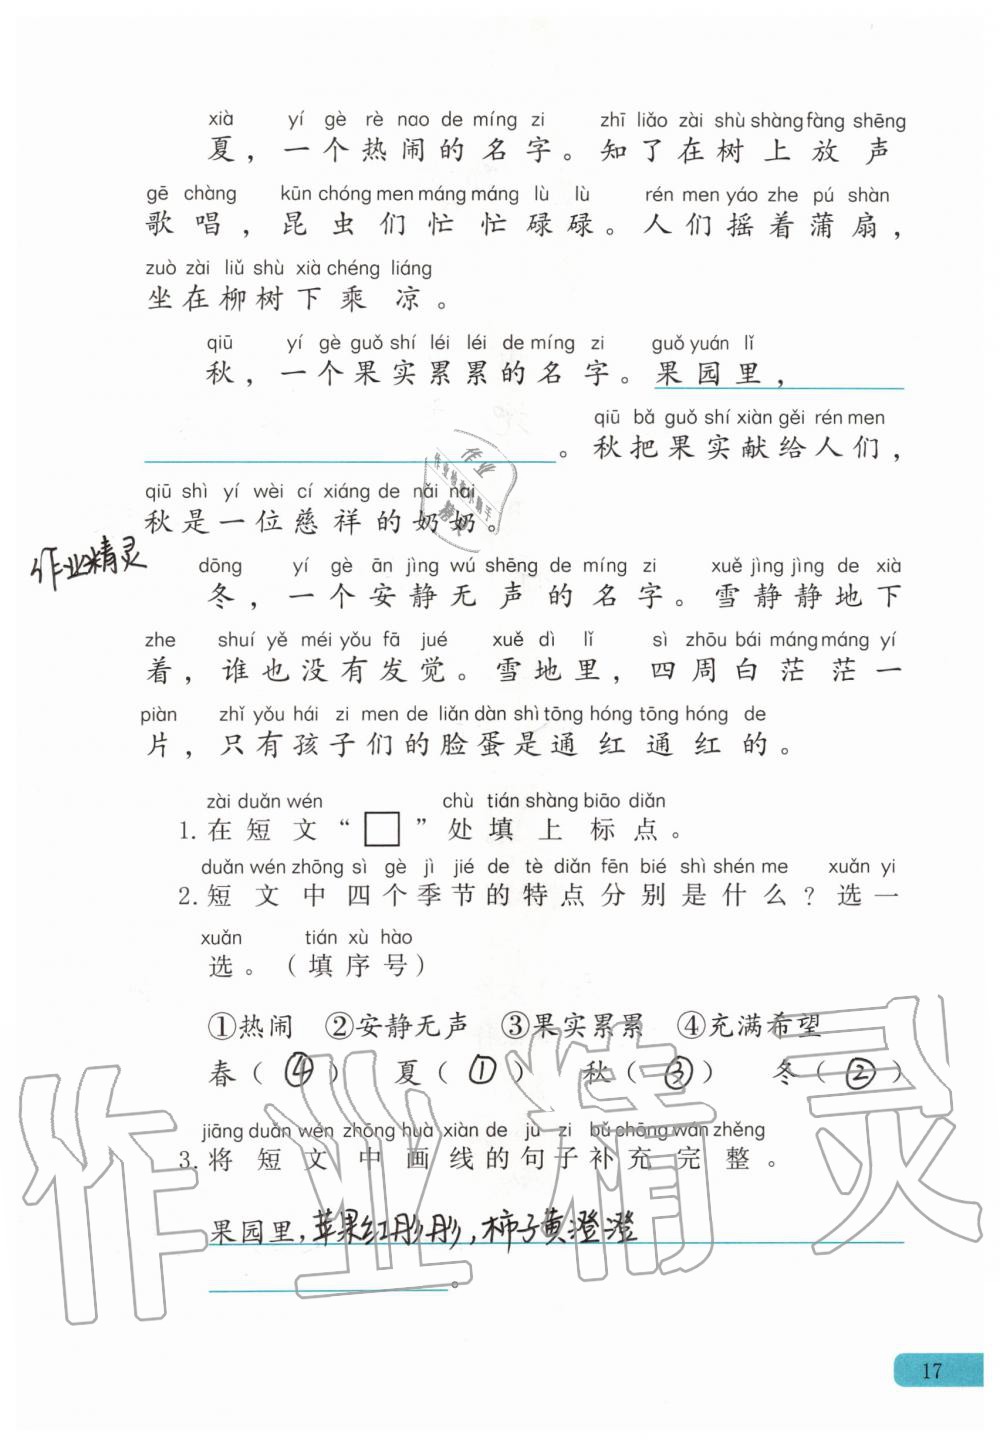 xià yí gè rè nao de míng zi zhī liǎo zài shù shàng fàng shēng
夏，一个热闹的名字。知了在树上放声
gē chàng kūn chóng men máng máng lù lù rén men yáo zhe pú shàn
歌唱，昆虫们忙忙碌碌。人们摇着蒲扇，
zuò zài liǔ shù xià chéng liáng
坐在柳树下乘凉。
qiū yí gè guǒ shí léi léi de míng zi guǒ yuán lǐ
秋，一个果实累累的名字。果园里，
qiū bǎ guǒ shí xiàn gěi rén men
。秋把果实献给人们，
qiū shì yí wèi cí xiáng de nǎi nai
秋是一位慈祥的奶奶。
作业精灵
dōng yí gè ān jìng wú shēng de míng zi xuě jìng jìng de xià
冬，一个安静无声的名字。雪静静地下
zhe shuí yě méi yǒu fā jué xuě dì lǐ sì zhōu bái máng máng yí
着，谁也没有发觉。雪地里，四周白茫茫一
piàn zhǐ yǒu hái zi men de liǎn dàn shì tōng hóng tōng hóng de
片，只有孩子们的脸蛋是通红通红的。
zài duǎn wén chù tián shàng biāo diǎn
1.在短文“□”处填上标点。
duǎn wén zhōng sì gè jì jié de tè diǎn fēn bié shì shén me xuǎn yi
2.短文中四个季节的特点分别是什么？选一
xuǎn tián xù hào
选。（填序号）
①热闹 ②安静无声 ③果实累累 ④充满希望
春（④） 夏（①） 秋（③） 冬（②）
jiāng duǎn wén zhōng huà xiàn de jù zi bǔ chōng wán zhěng
3.将短文中画线的句子补充完整。
果园里，苹果红彤彤，柿子黄澄澄
。
作业精灵
17